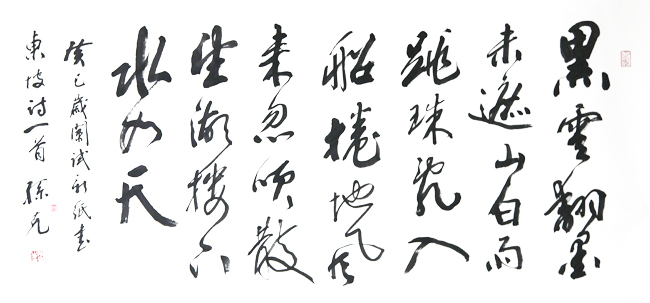 黑雲翻墨
未遮山白雨
跳珠亂入
船捲地風
來忽吹散
望湖樓下
水如天
癸巳歲闌試新紙書
東坡詩一首 孫